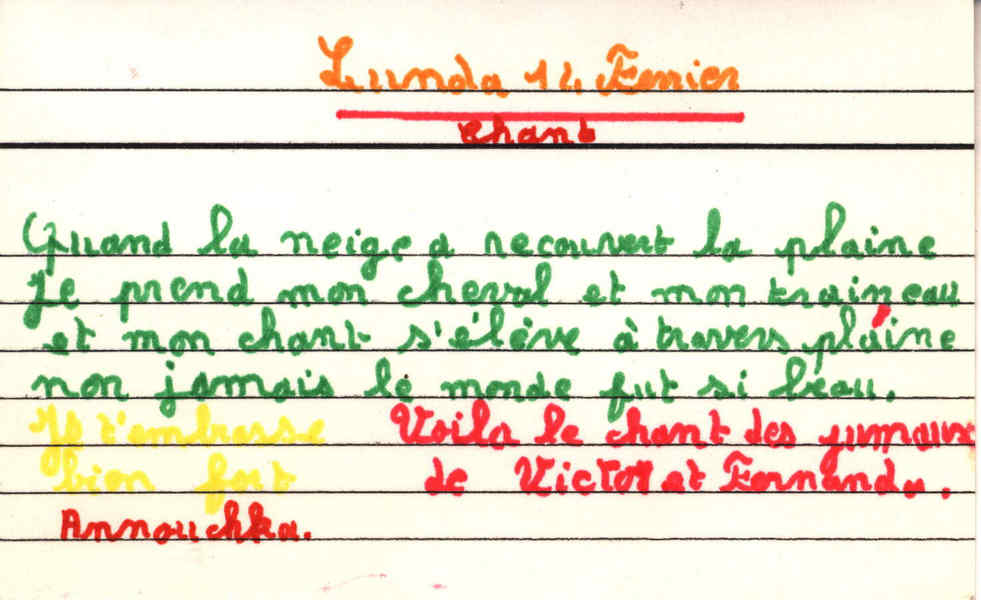 Lunda 14 Fevrier
Chant
Quand la neige a recouvert la plaine
Je prend mon cheval et mon traineau
et mon chant s'élève à travers plaine
non jamais le monde fut si beau.
Je t'embrasse
bien fort
Annouchka.
Voila le chant des jumaux
de Victor et Fernanda.